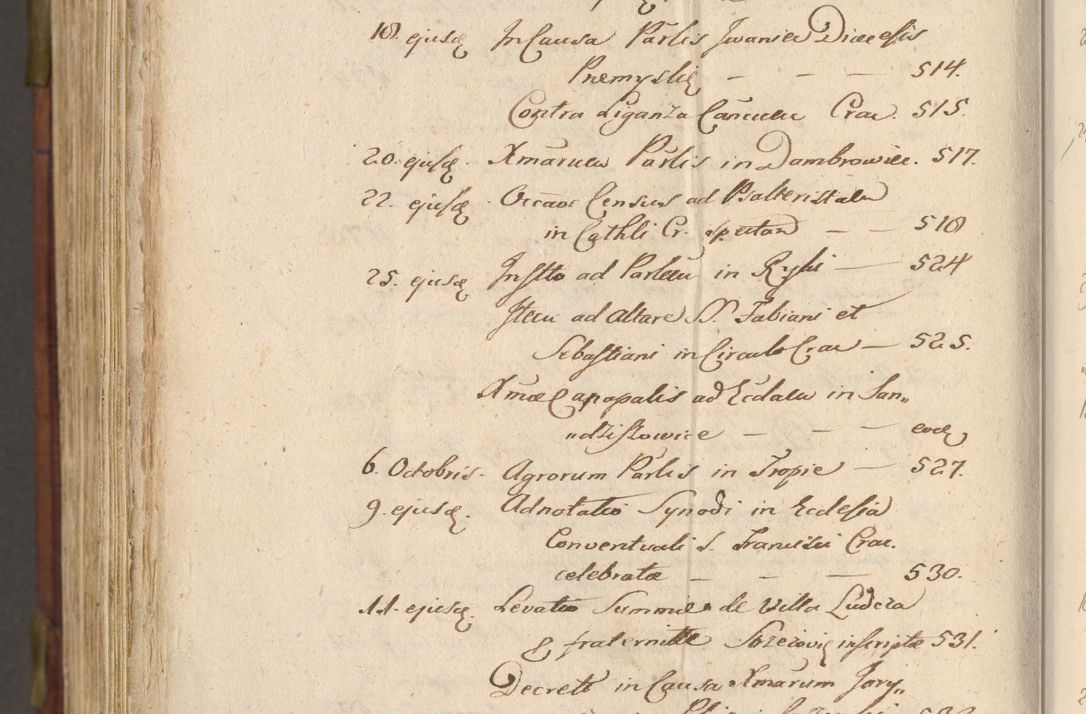 18. ejusq̃ In Causa Parlis Jwanien Diœcesis
Premysliẽ — — — 514.
Contra Liganza Cancum Crac. 515.
20. ejusq̃. Xmarum Parlis in Dambrowiec. 517.
22. ejusq̃. Occaõe Census ad Psalteristatu
in Cathli Cr. spectan — — 518
25. ejusq̃ Instto ad Parlem in Rybi — 524
Item ad Altare SS. Fabiani et
Sebastiani in Circulo Crac — 525.
Xmæ Canopalis ad Ecclam in San„
„dziszowice — — — eodẽ
6. Octobris. Agrorum Parlis in Tropie — 527.
9. ejusq̃. Adnotatio Synodi in Ecclesia
Conventuali S. Francisci Crac.
celebratæ — — — 530.
11. ejusq̃. Levatio Summæ de Villa Ludzia
fraternitte inscriptæ 531.
Decreto in Causa Xmarum Jary„